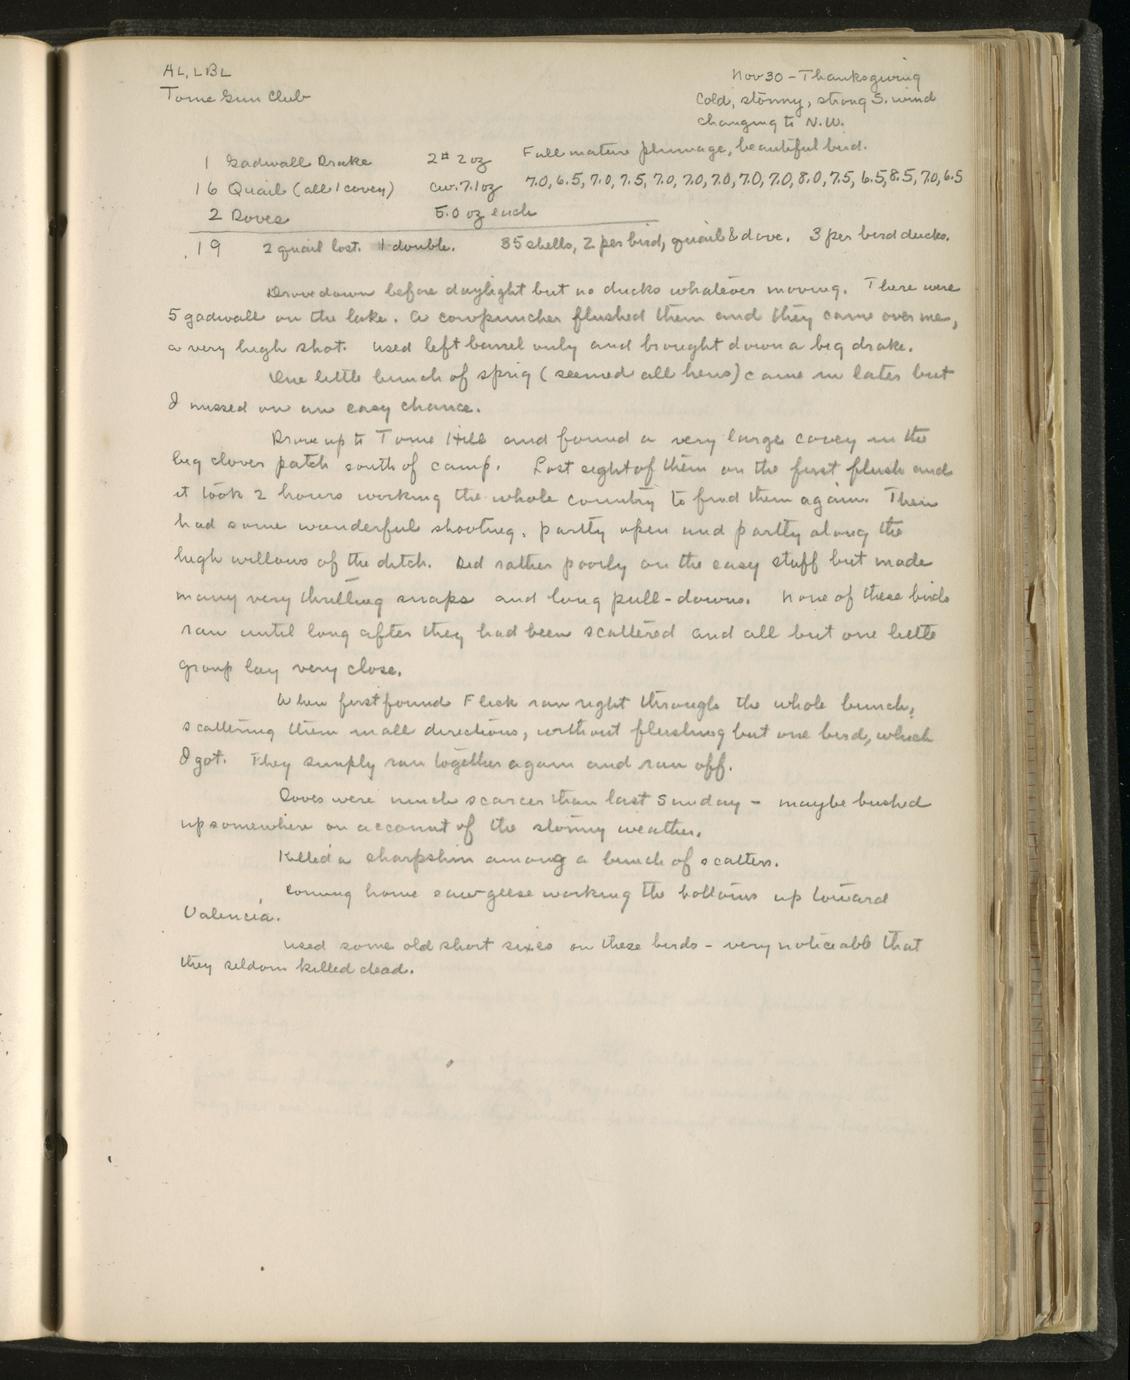 AL, LBL
Tome Gun Club
Nov 30 - Thanksgiving
Cold, stormy, strong S. wind
changing to N.W.
1 Gadwall Drake 2# 2 oz Full mature plumage, beautiful bird.
16 Quail (all 1 covey) av. 7.1 oz 7.0, 6.5, 7.0, 7.5, 7.0, 7.0, 7.0, 7.0, 7.0, 8.0, 7.5, 6.5, 8.5, 7.0, 6.5
2 Doves 5.0 oz each
19 2 quail lost. 1 double. 35 shells, 2 per bird, quail & dove. 3 per bird ducks.
Drove down before daylight but no ducks whatever moving. There were
5 gadwall on the lake. A cowpuncher flushed them and they came over me,
a very high shot. Used left barrel only and brought down a big drake.
One little bunch of sprig (seemed all hens) came in later but
I missed on an easy chance.
Drove up to Tome Hill and found a very large covey in the
big clover patch south of camp. Lost sight of them on the first flush and
it took 2 hours working the whole country to find them again. Then
had some wonderful shooting, partly open and partly along the
high willows of the ditch. Did rather poorly on the easy stuff but made
many very thrilling snaps and long pull-downs. None of these birds
ran until long after they had been scattered and all but one little
group lay very close.
When first found Flick ran right through the whole bunch,
scattering them in all directions, without flushing but one bird, which
I got. They simply ran together again and ran off.
Doves were much scarcer than last Sunday - maybe bushed
up somewhere on account of the stormy weather.
Killed a sharpshin among a bunch of scatters.
Coming home saw geese working the bottoms up toward
Valencia.
Used some old short sixes on these birds - very noticeable that
they seldom killed dead.